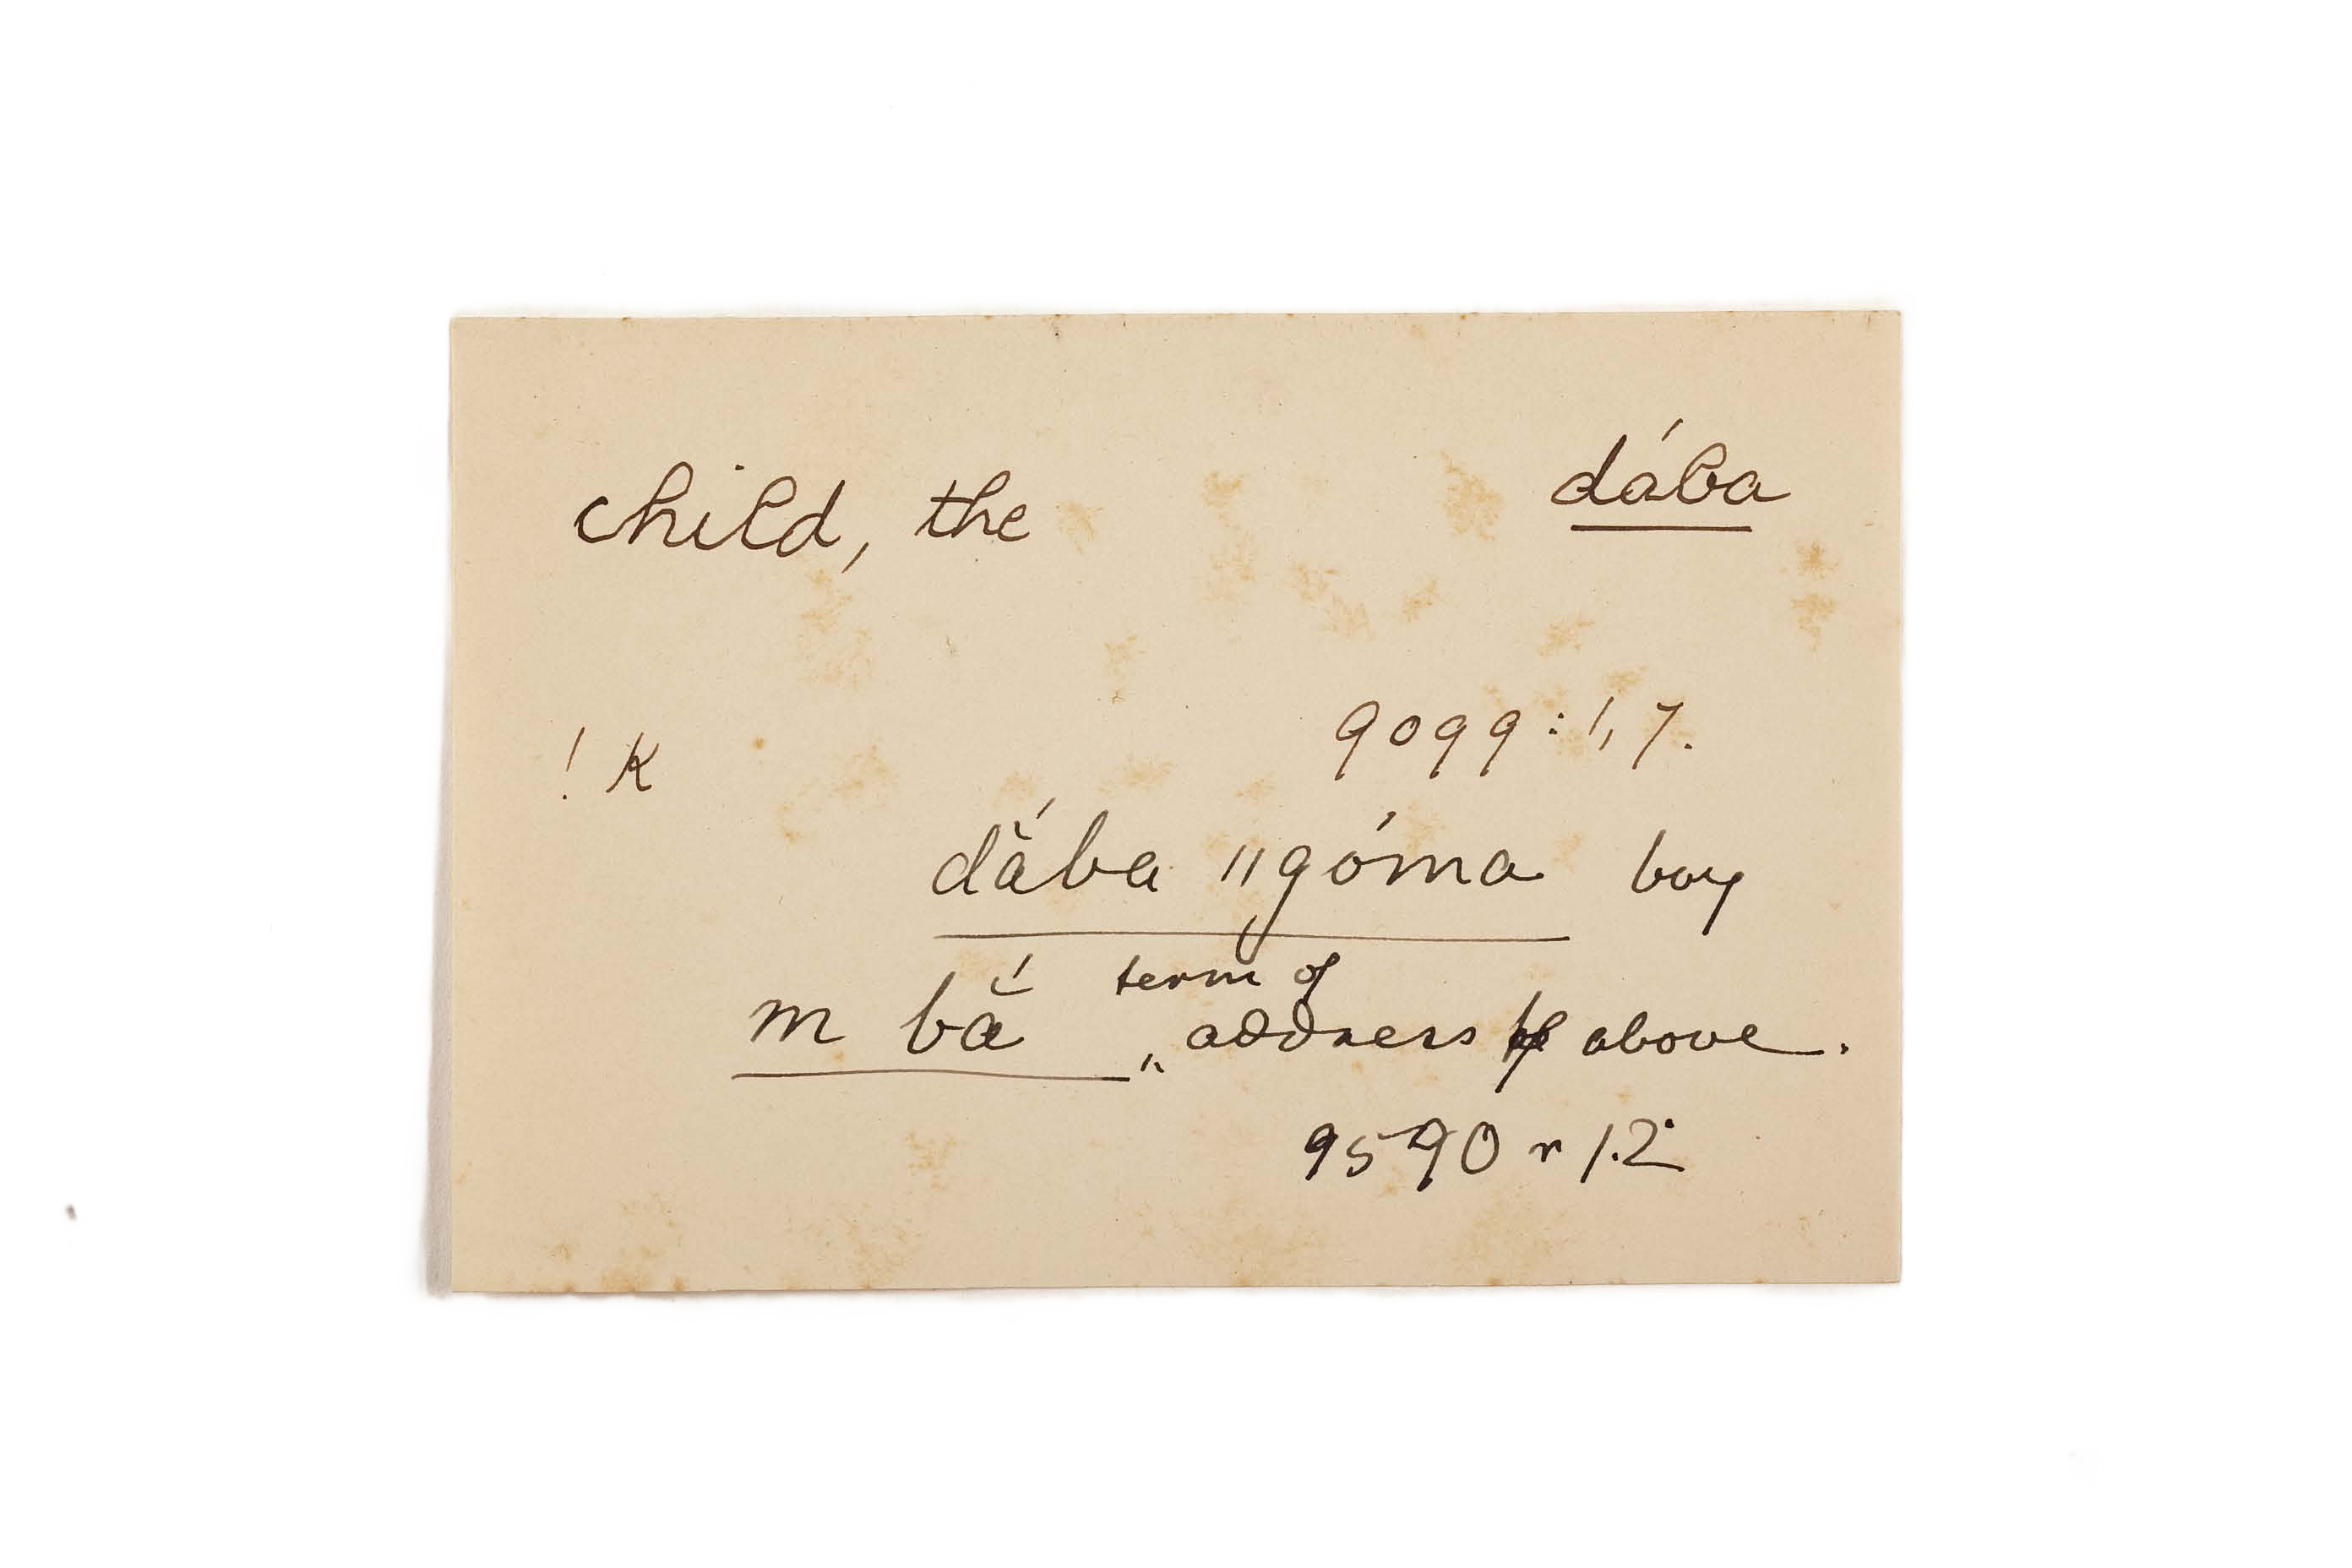 child, the dába
9099:1,7.
! K
dā̆́ba ǁgóma boy
term of
m bā̆́ „ address above.
9590 r 1.2